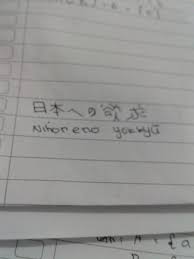 日本への欲求
Nihon e no yokkyū